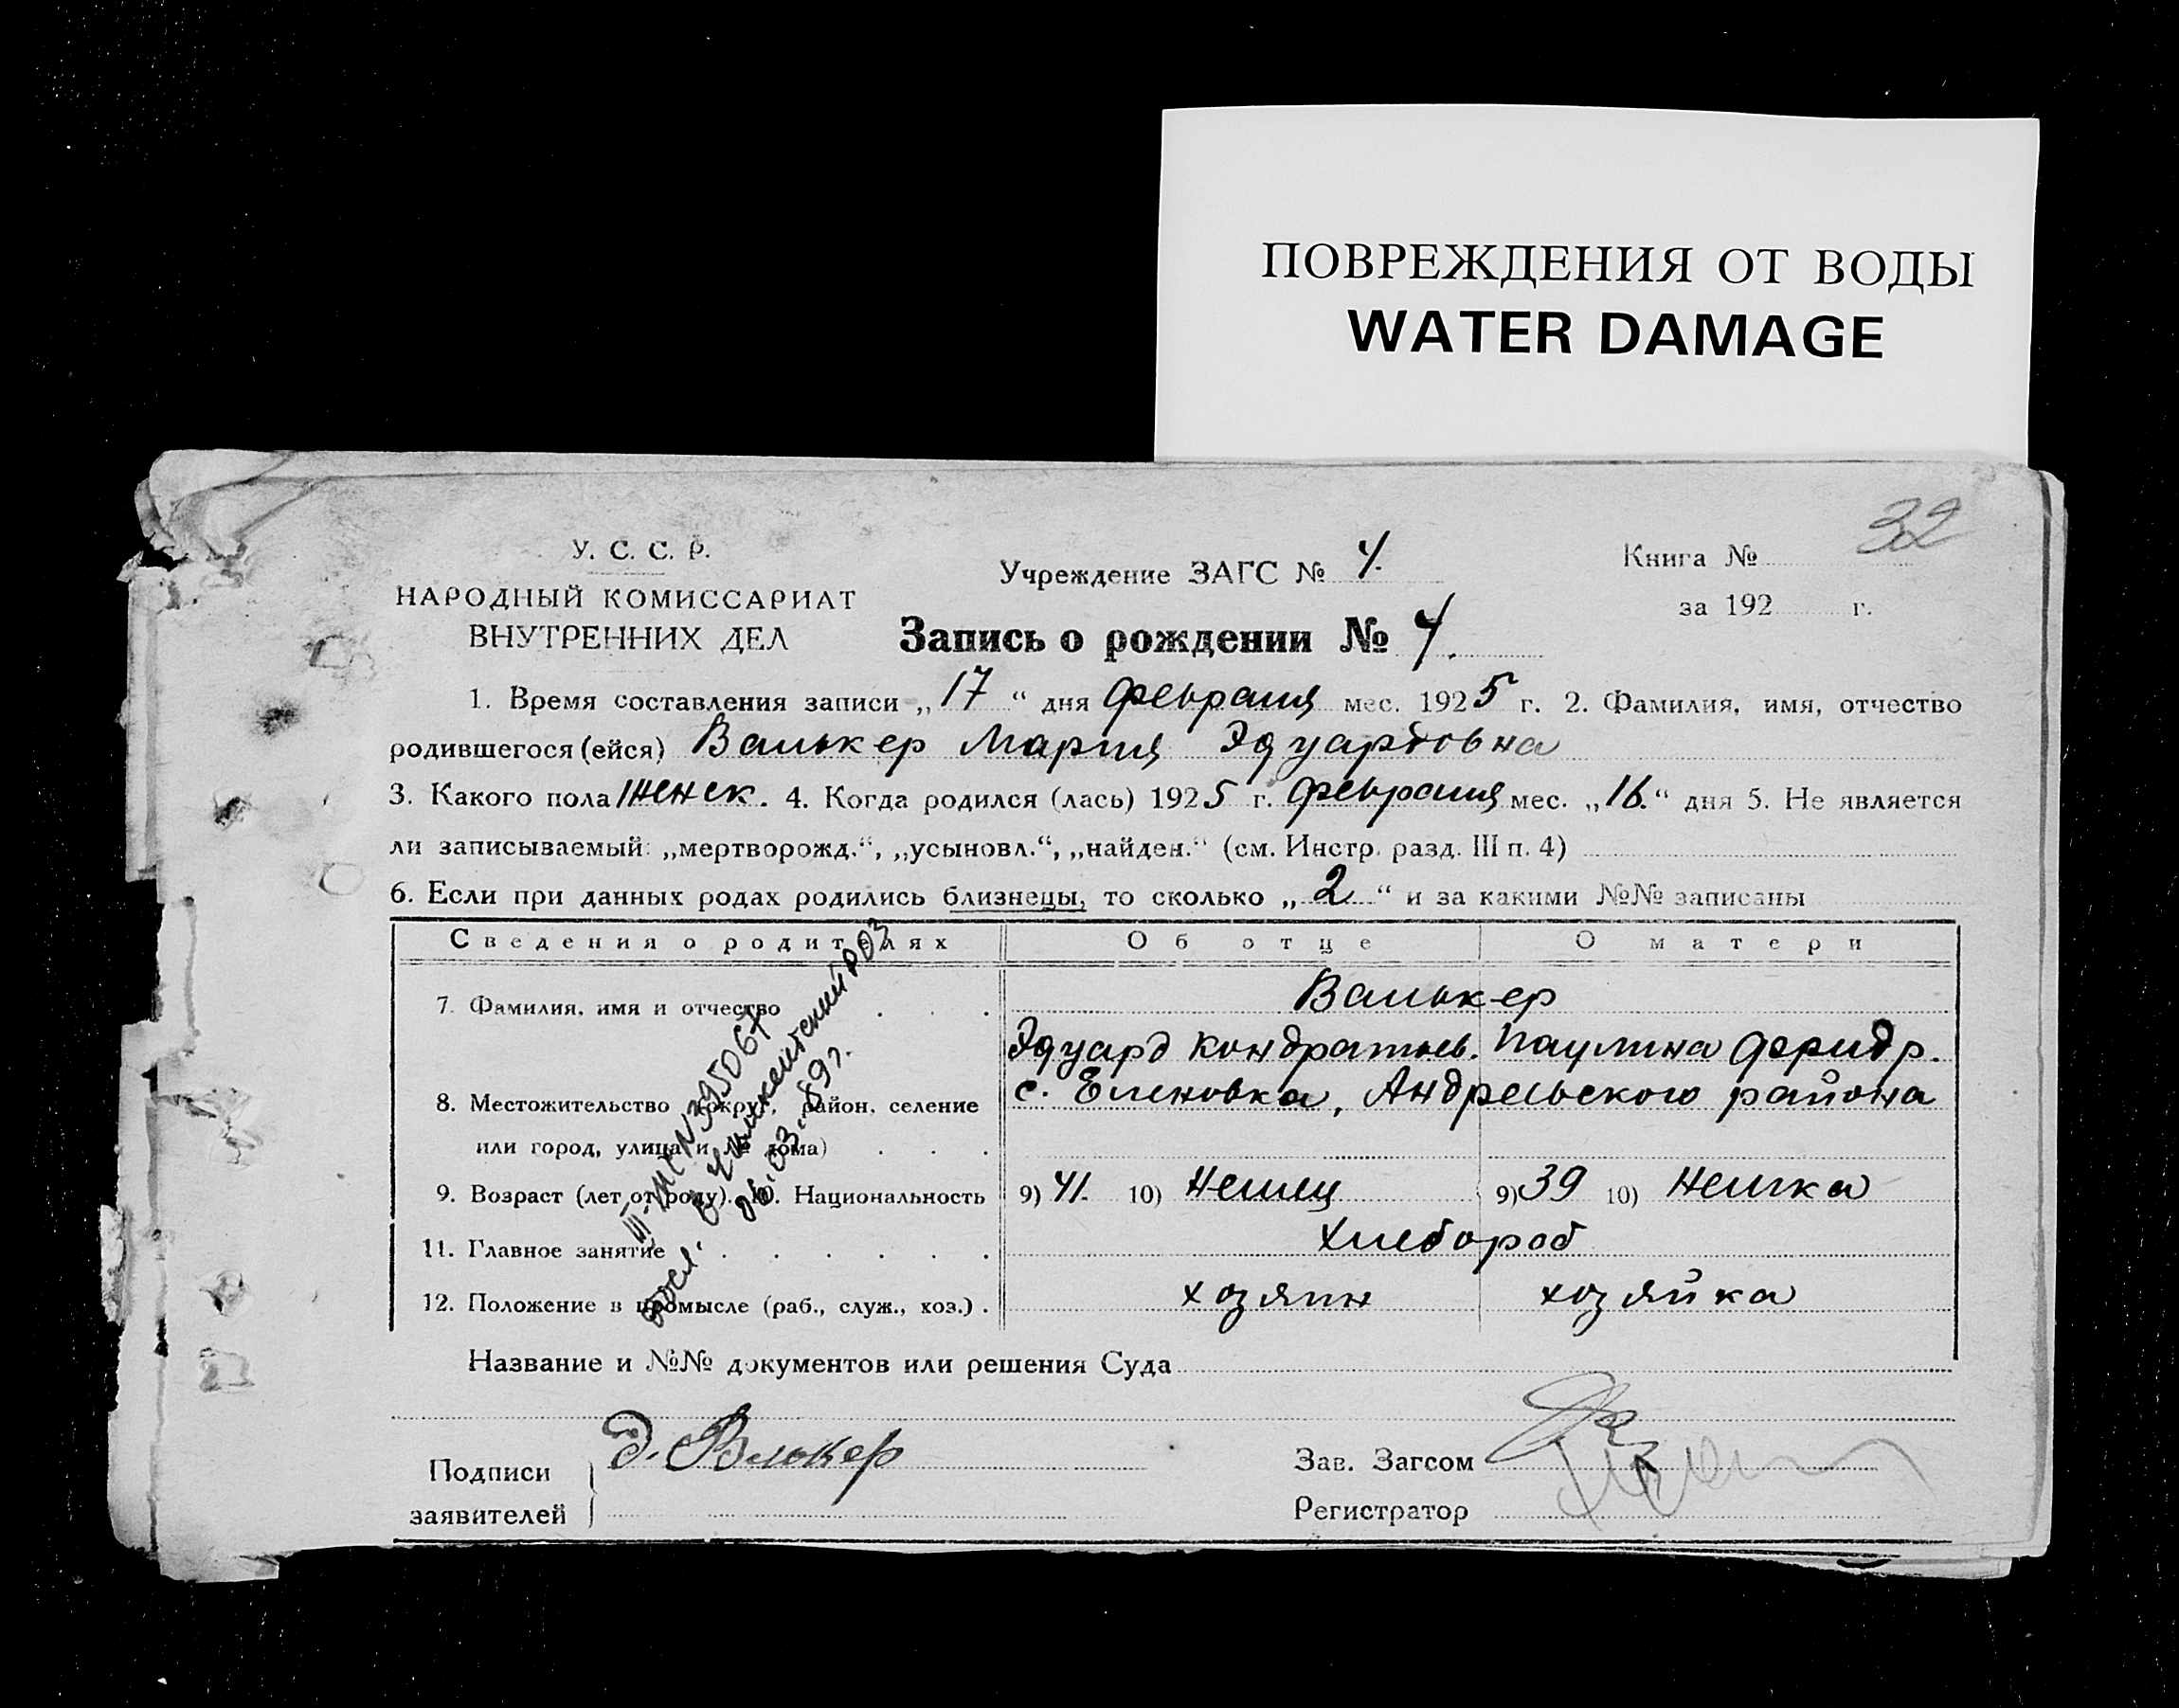 ПОВРЕЖДЕНИЯ ОТ ВОДЫ
WATER DAMAGE
32
У. С. С. Р.
НАРОДНЫЙ КОМИССАРИАТ
ВНУТРЕННИХ ДЕЛ
Учреждение ЗАГС № 4.
Книга №
за 192 г.
Запись о рождении № 4.
1. Время составления записи „17“ дня февраля мес. 1925 г. 2. Фамилия, имя, отчество
родившегося (ейся) Валькер Мария Эдуардовна
3. Какого пола женск. 4. Когда родился (лась) 1925 г. февраля мес. „16.“ дня 5. Не является
ли записываемый: „мертворожд.“, „усыновл.“, „найден.“ (см. Инстр. разд. III п. 4)
6. Если при данных родах родились близнецы, то сколько „2“ и за какими №№ записаны
Сведения о родителях Об отце О матери
7. Фамилия, имя и отчество . . . Валькер
Эдуард Кондратьев. Паулина Фридр.
8. Местожительство (округ, район, селение с. Еленовка, Андреевского района
или город, улица и № дома) . . .
9. Возраст (лет от роду). 10. Национальность 9) 41. 10) Немец 9) 39 10) Немка
11. Главное занятие . . . . . . Хлебороб
12. Положение в промысле (раб., служ., хоз.) . хозяин хозяйка
III-  № 395067
в Чимкентский РОЗ
06.03.89г.
Название и №№ документов или решения Суда
Подписи
заявителей
Э. Валькер
Зав. Загсом
Регистратор